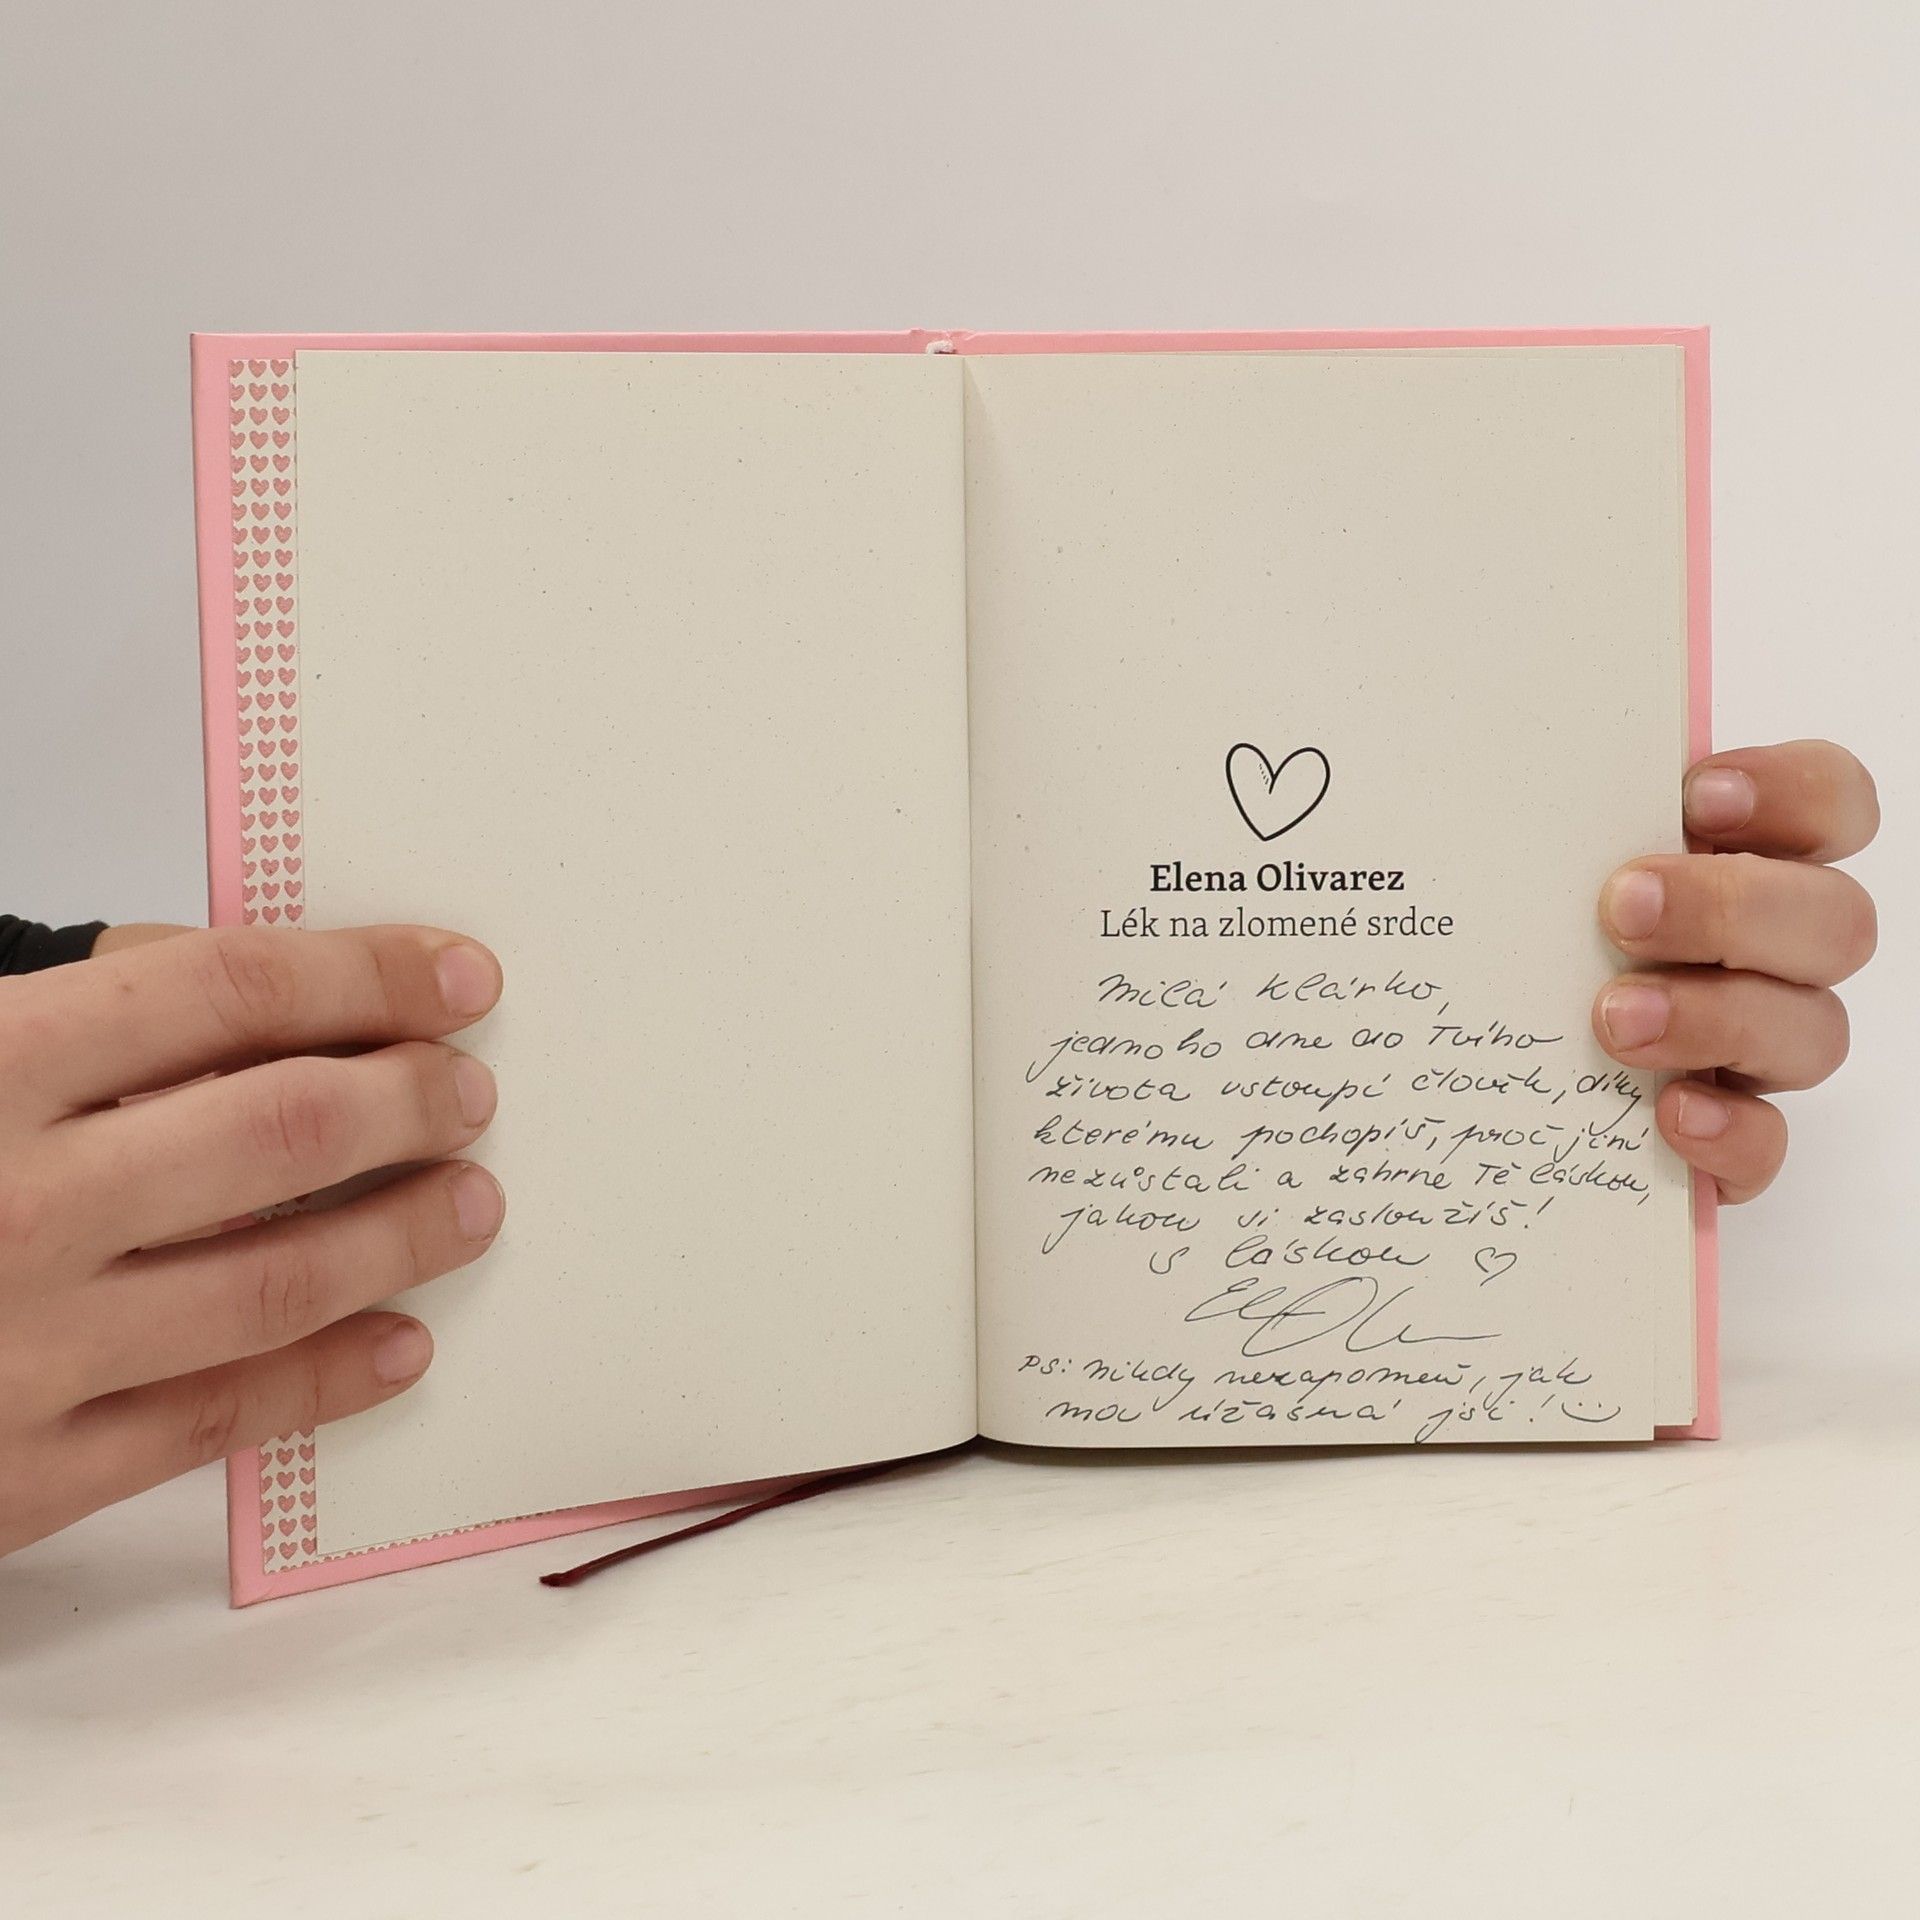 Elena Olivarez
Lék na zlomené srdce
Milá Klárko,
jednoho dne do Tvího
života vstoupí člověk, díky
kterému pochopíš, proč jiní
nezůstali a zahrne Tě láskou,
jakou si zasloužíš!
S láskou ♡
PS: Nikdy nezapomeň, jak
moc úžasná jsi! :)